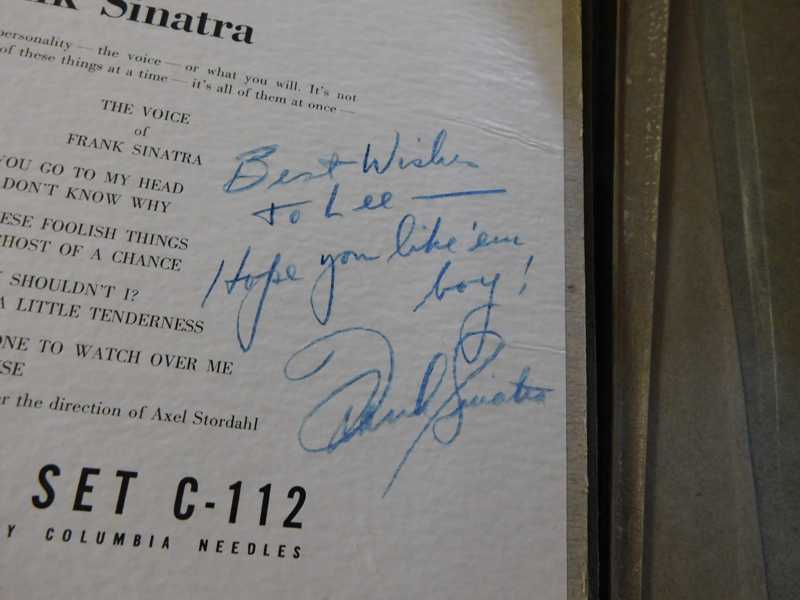 nk Sinatra
personality — the voice — or what you will. It's not
of these things at a time — it's all of them at once —
THE VOICE
of
FRANK SINATRA
YOU GO TO MY HEAD
DON'T KNOW WHY
ESE FOOLISH THINGS
HOST OF A CHANCE
SHOULDN'T I?
A LITTLE TENDERNESS
ONE TO WATCH OVER ME
SE
er the direction of Axel Stordahl
SET C-112
Y COLUMBIA NEEDLES
Best Wishes
to Lee —
Hope you like 'em
boy!
Frank Sinatra